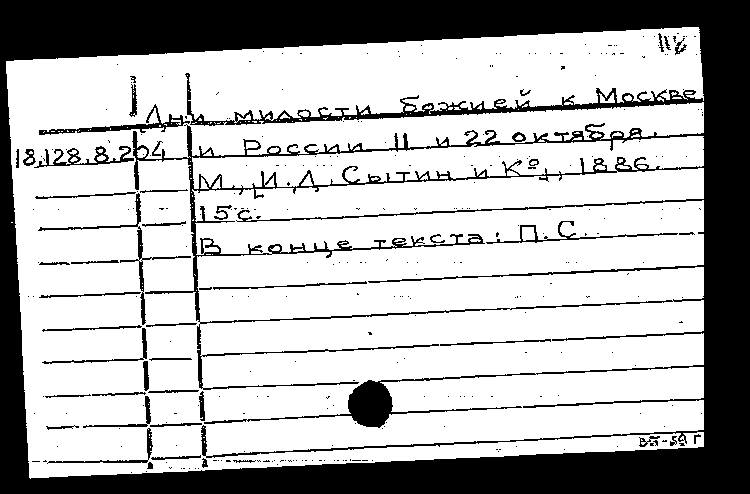 Дни милости божией к Москве
18.128.8.204 и России 11 и 22 октября.
М., И.Д. Сытин и Кº, 1886.
15 с.
В конце текста: П.С.